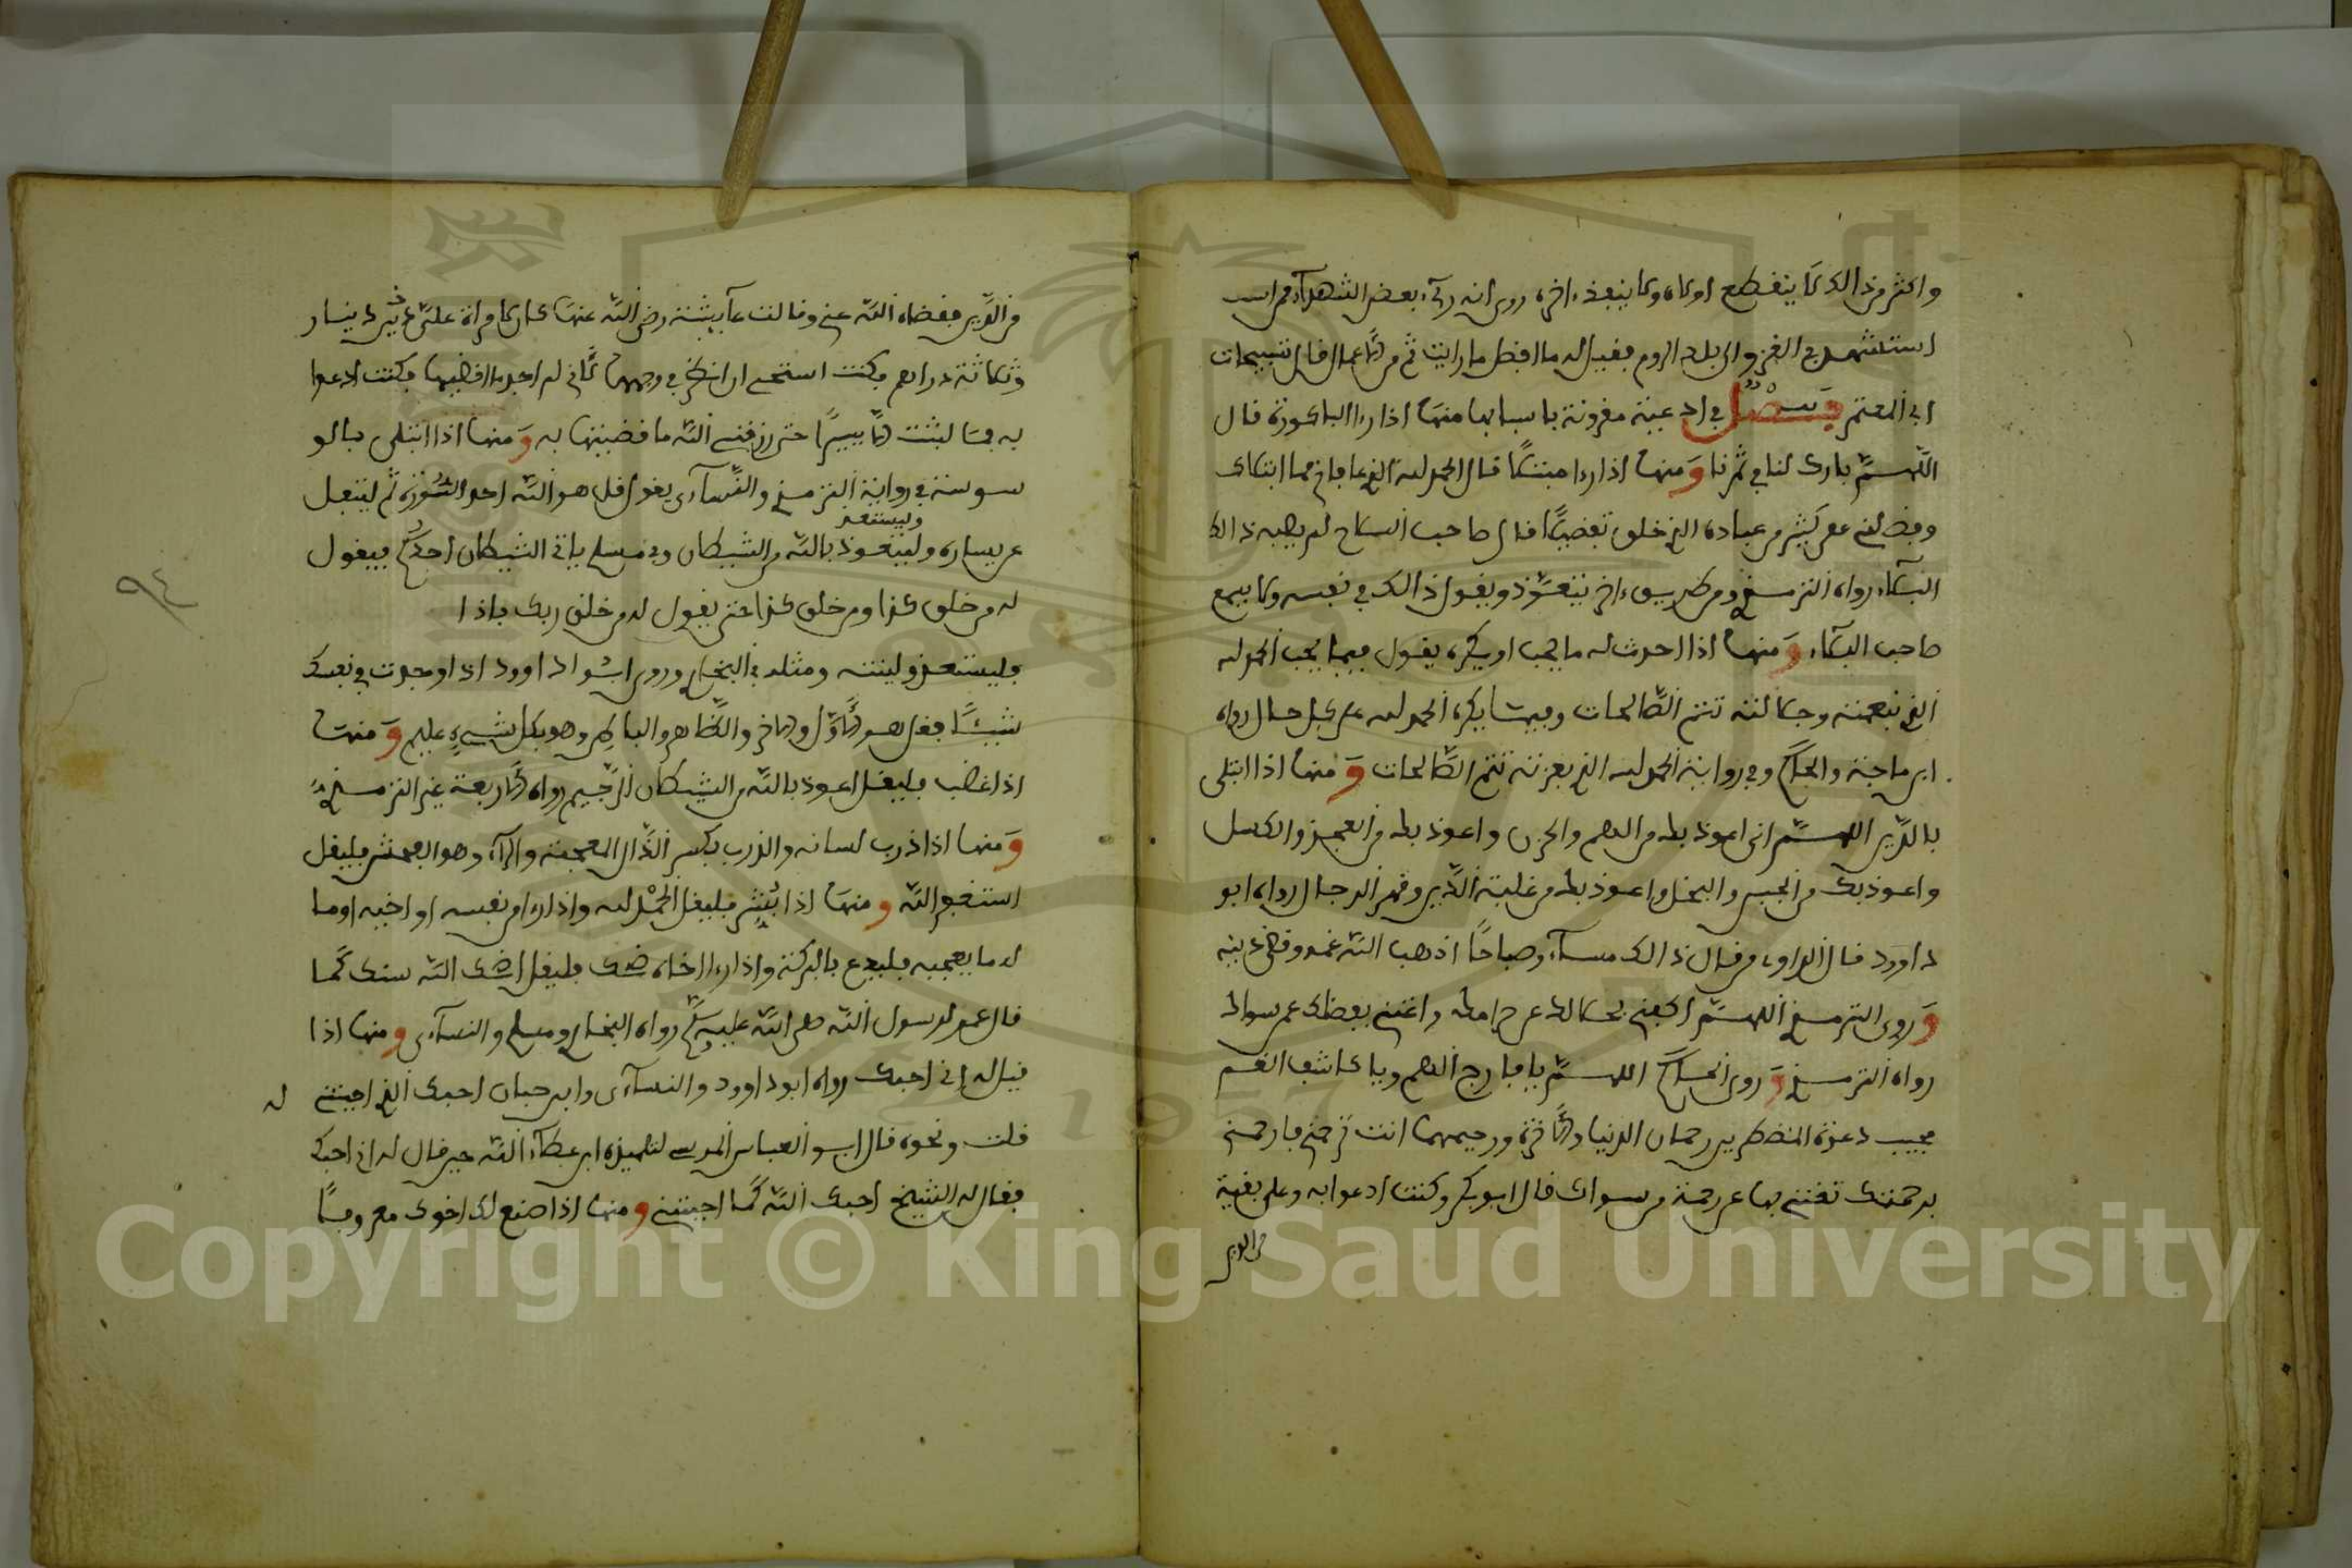 واكثر من ذالك لا ينقطع اولاه ولا ينفد اخره روي انه رءي بعض الشهداء ممن
استشهد في الغزو الى بلاد الروم فقيل له ما افضل ما رايت ثم من الاعمال قال تسبيحات
ابي المعتمر فصل في ادعية مقرونة باسبابها منها اذا رءا الباكورة قال
اللهم بارك لنا في ثمرنا ومنها اذا رءا مبتلا قال الحمد لله الذي عافاني مما ابتلاك
وفضلني على كثير من عباده الذي خلق تفضيلا قال صاحب السلاح لم يصبه ذالك
البلاء رواه الترمذي ومن طريق ءاخر يتعوذ ويقول ذالك في نفسه ولا يسمع
صاحب البلاء ومنها اذا احدث له ما يحب او يكره يقول فيما يحب الحمد لله
الذي بنعمته وجلاله تتم الصالحات وفيما يكره الحمد لله على كل حال رواه
ابن ماجة والحاكم وفي رواية الحمد لله الذي بعزته تتم الصالحات ومنها اذا ابتلى
بالدين اللهم اني اعوذ بك من الهم والحزن واعوذ بك من العجز والكسل
واعوذ بك من الجبن والبخل واعوذ بك من غلبة الدين وقهر الرجال رواه ابو
داوود قال الراوي من قال ذالك مساء وصباحا اذهب الله غمه وقضى دينه
وروى الترمذي اللهم اكفني بحلالك عن حرامك واغنني بفضلك عمن سواك
رواه الترمذي وروى الحاكم اللهم يا فارج الهم ويا كاشف الغم
مجيب دعوة المضطرين رحمان الدنيا والاخرة ورحيمهما انت ترحمني فارحمني
برحمتك تغنني بها عن رحمة من سواك قال ابو بكر وكنت ادعوا به وعلى بقية
من الدين
من الدين فقضاه الله عني وقالت عآيشة رضي الله عنها كان لامراة علي دينار
وثلاثة دراهم فكنت استحيي ان انظر في وجهها لاني لم اجد ما اقضيها فكنت ادعوا
به فما لبثت الا يسيرا حتى رزقني الله ما قضيتها به ومنها اذا ابتلى بالو
سوسة في رواية الترمذي والنسآءي يقول قل هو الله احد السورة ثم ليتفل
وليستعذ
عن يساره وليتعوذ بالله من الشيطان وفي مسلم ياتي الشيطان احدكم فيقول
له من خلق كذا ومن خلق كذا حتى يقول له من خلق ربك فاذا
فليستعذ ولينته ومثله في البخاري وروى ابو داوود اذا وجدت في نفسك
شيئا فقل هو الاول والاخر والظاهر والباطن وهو بكل شيء عليم ومنها
اذا غضب فليقل اعوذ بالله من الشيطان الرجيم رواه الاربعة غير الترمذي
ومنها اذا ذرب لسانه والذرب بكسر الذال المعجمة والراء وهو الفحش فليقل
استغفر الله ومنها اذا بشر فليقل الحمد لله واذا رءا من نفسه او اخيه او ما
له ما يعجبه فليدع بالبركة واذا رءا اخاه ضحك فليقل اضحك الله سنك كما
قال عمر لرسول الله صلى الله عليه وسلم رواه البخاري ومسلم والنسآءي ومنها اذا
قيل له إني احبك رواه ابو داوود والنسآءي وابن حبان احبك الذي احببتني له
قلت ونحوه قال ابو العباس المرسي لتلميذه ابن عطآء الله حين قال له اني احبك
فقال له الشيخ احبك الله كما احببتني ومنها اذا صنع لك اخوك معروفا
٩٤
Copyright © King Saud University
1957